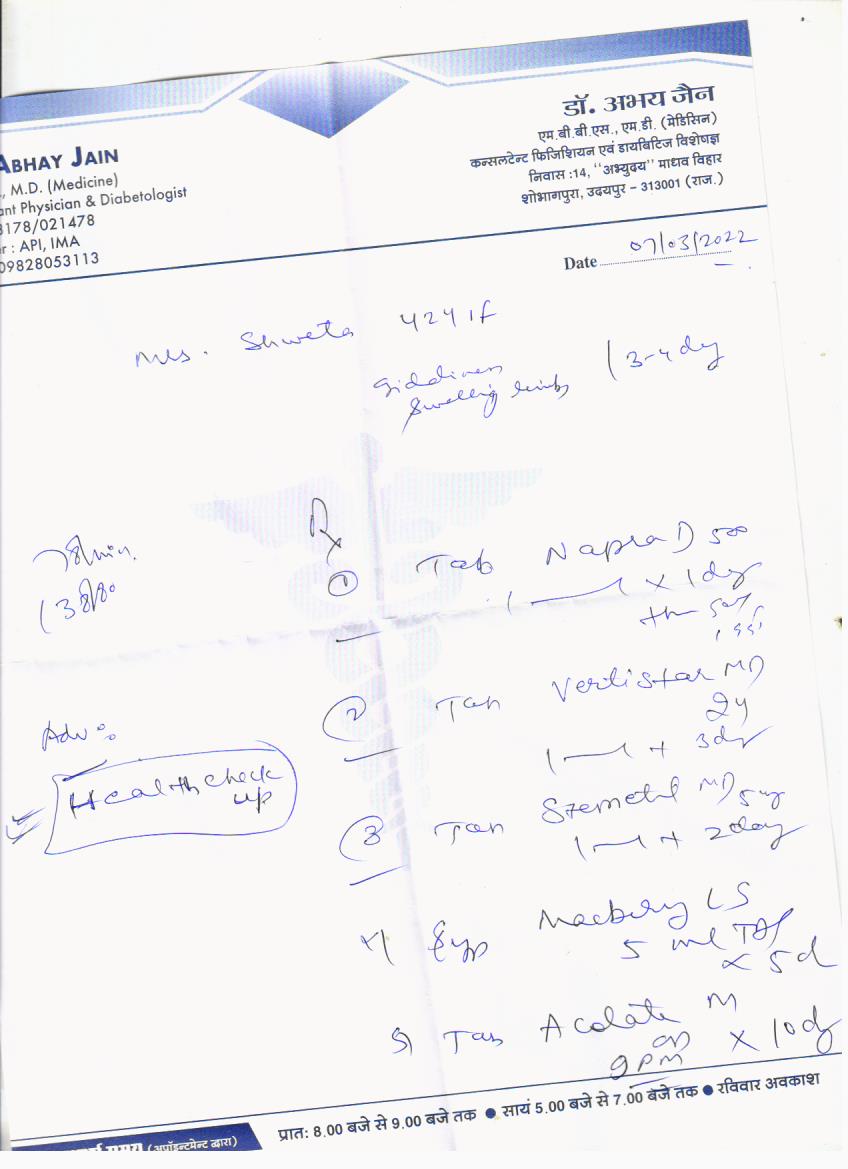 ABHAY JAIN
., M.D. (Medicine)
ant Physician & Diabetologist
3178/021478
r : API, IMA
09828053113
डॉ. अभय जैन
एम.बी.बी.एस., एम.डी. (मेडिसिन)
कन्सलटेन्ट फिजिशियन एवं डायबिटिज विशेषज्ञ
निवास :14, "अभ्युदय" माधव विहार
शोभागपुरा, उदयपुर – 313001 (राज.)
Date 07/03/2022
Mrs. Shweta 42y/f
Giddiness
Swelling limbs
3-4 dy
Rx
① Tab Napra D 500
1 — 1 x 1dy
② Tab Vertistar MD
1 — 1 + 3dy
Adv :
Health check
up
③ Tab Stemetil MD 5mg
1 — 1 + 2day
4) Syp Macbery LS
5 ml TDS
x 5d
5) Tab Acolate M
9 PM x 10dy
(अपॉइन्टमेन्ट द्वारा)
प्रात: 8.00 बजे से 9.00 बजे तक ● सायं 5.00 बजे से 7.00 बजे तक ● रविवार अवकाश